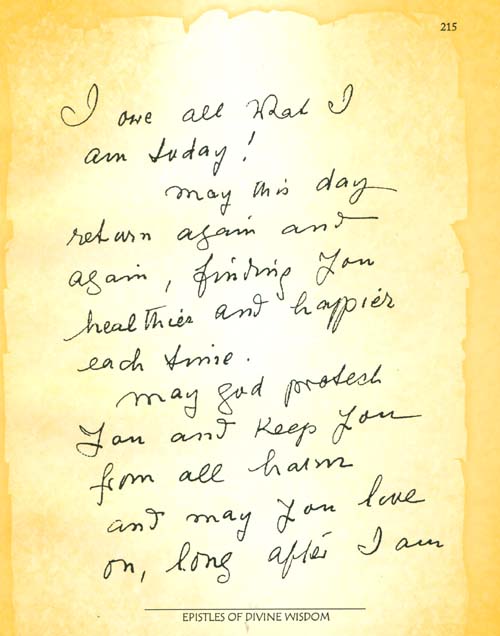 215
I owe all what I
am today!
may this day
return again and
again, finding you
healthier and happier
each time.
may god protect
You and keep you
from all harm
and may you live
on, long after I am
EPISTLES OF DIVINE WISDOM